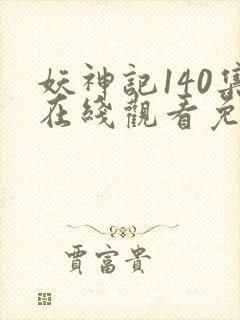 妖神記140集
在綫觀看免
賈富貴